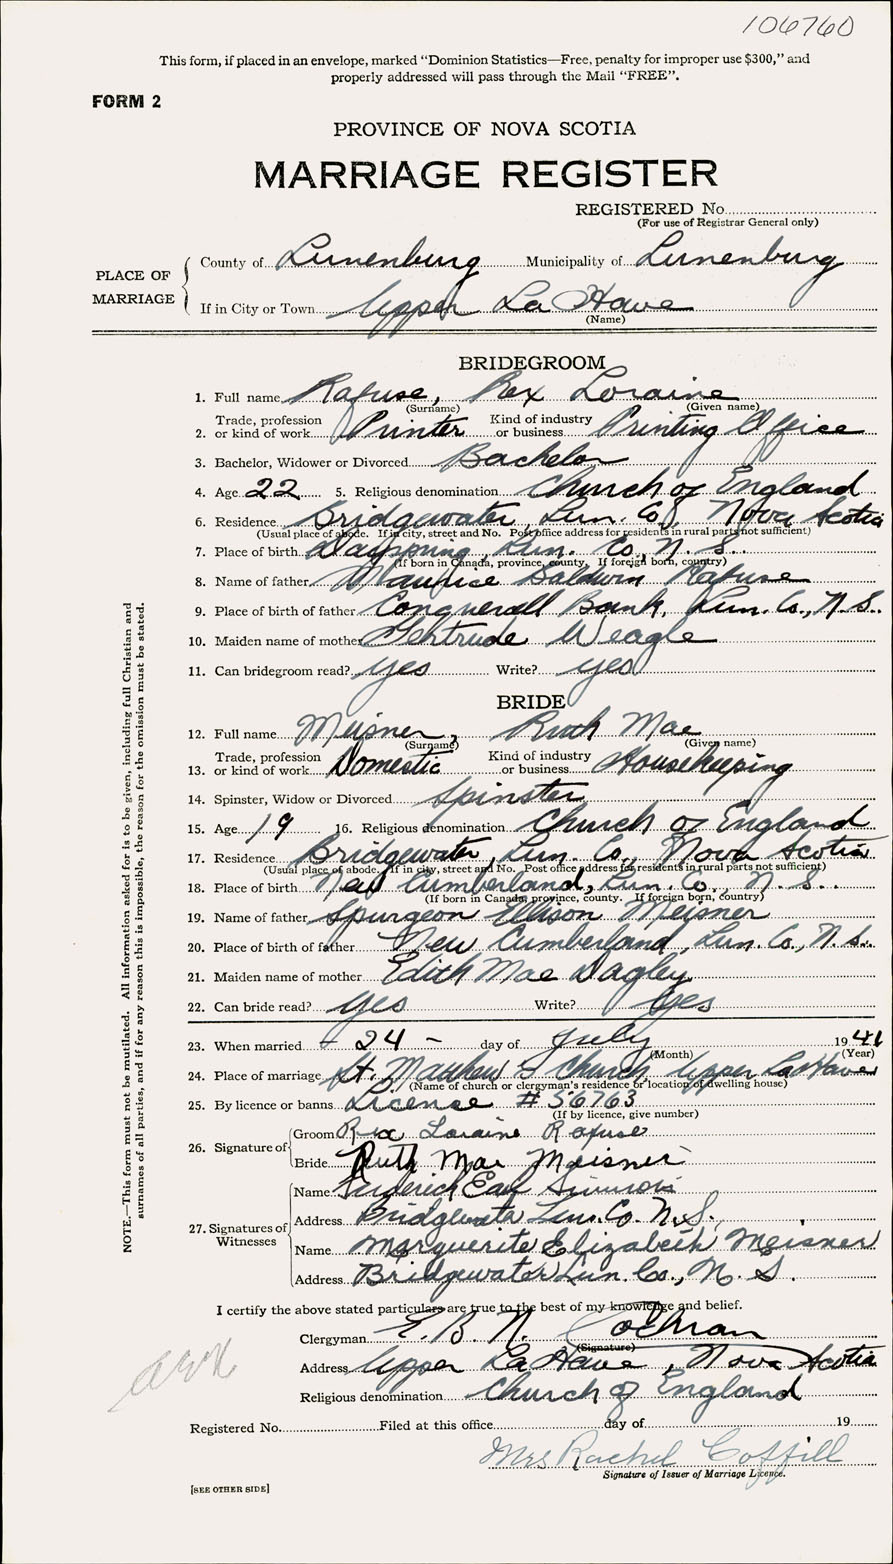 106760
This form, if placed in an envelope, marked "Dominion Statistics—Free, penalty for improper use $300," and
properly addressed will pass through the Mail "FREE".
FORM 2
PROVINCE OF NOVA SCOTIA
MARRIAGE REGISTER
REGISTERED No.
(For use of Registrar General only)
PLACE OF MARRIAGE
County of Lunenburg Municipality of Lunenburg
If in City or Town Upper La Have
(Name)
BRIDEGROOM
1. Full name Rafuse, Rex Loraine
(Surname) (Given name)
2. Trade, profession or kind of work Printer Kind of industry or business Printing Office
3. Bachelor, Widower or Divorced Bachelor
4. Age 22 5. Religious denomination Church of England
6. Residence Bridgewater, Lun. Co., Nova Scotia
(Usual place of abode. If in city, street and No. Post office address for residents in rural parts not sufficient)
7. Place of birth Dayspring, Lun. Co., N. S.
(If born in Canada, province, county. If foreign born, country)
8. Name of father Maurice Baldwin Rafuse
9. Place of birth of father Conquerall Bank, Lun. Co., N.S.
10. Maiden name of mother Gertrude Weagle
11. Can bridegroom read? yes Write? yes
BRIDE
12. Full name Meisner, Ruth Mae
(Surname) (Given name)
13. Trade, profession or kind of work Domestic Kind of industry or business Housekeeping
14. Spinster, Widow or Divorced Spinster
15. Age 19 16. Religious denomination Church of England
17. Residence Bridgewater, Lun. Co., Nova Scotia
(Usual place of abode. If in city, street and No. Post office address for residents in rural parts not sufficient)
18. Place of birth New Cumberland, Lun. Co., N. S.
(If born in Canada, province, county. If foreign born, country)
19. Name of father Spurgeon Ellison Meisner
20. Place of birth of father New Cumberland, Lun. Co., N.S.
21. Maiden name of mother Edith Mae Dagley
22. Can bride read? yes Write? yes
23. When married - 24 - day of July 1941
(Month) (Year)
24. Place of marriage St. Matthew's Church Upper La Have
(Name of church or clergyman's residence or location of dwelling house)
25. By licence or banns License # 56763
(If by licence, give number)
26. Signature of Groom Rex Loraine Rafuse
Bride Ruth Mae Meisner
27. Signatures of Witnesses
Name Frederick Earl
Address Bridgewater Lun. Co. N.S.
Name Marguerite Elizabeth Meisner
Address Bridgewater Lun. Co., N. S.
I certify the above stated particulars are true to the best of my knowledge and belief.
Clergyman E. B. N. Cochran
(Signature)
Address Upper La Have, Nova Scotia
Religious denomination Church of England
Registered No. Filed at this office day of 19
Mrs Rachel Coffill
Signature of Issuer of Marriage Licence.
[SEE OTHER SIDE]
NOTE.—This form must not be mutilated. All information asked for is to be given, including full Christian and
surnames of all parties, and if for any reason this is impossible, the reason for the omission must be stated.